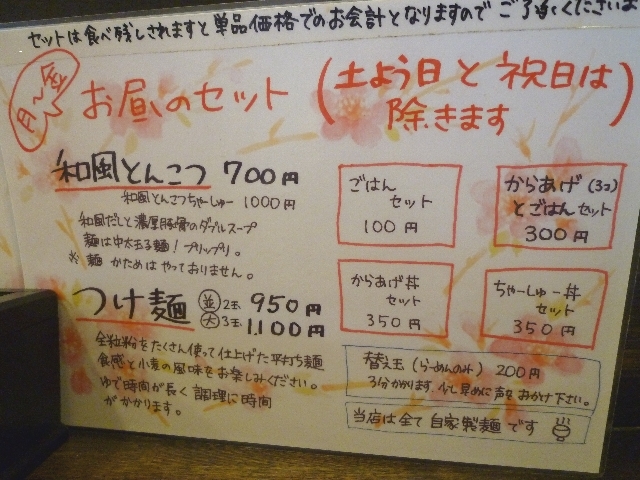 セットは食べ残しされますと単品価格でのお会計となりますので ご了承くださいま
月〜金
お昼のセット (土よう日と祝日は
除きます)
和風とんこつ 700円
和風とんこつちゃーしゅー 1000円
和風だしと濃厚豚骨のダブルスープ
麺は中太玉子麺!プリップリ。
※ 麺 かためは やっておりません。
つけ麺 並 2玉 950円
大 3玉 1,100円
全粒粉をたくさん使って仕上げた平打ち麺
食感と小麦の風味をお楽しみください。
ゆで時間が長く調理に時間
がかかります。
ごはん
セット
100円
からあげ(3コ)
とごはんセット
300円
からあげ丼
セット
350円
ちゃーしゅー丼
セット
350円
替え玉(らーめんのみ) 200円
3分かかります。少し早めに声をおかけ下さい。
当店は全て自家製麺です